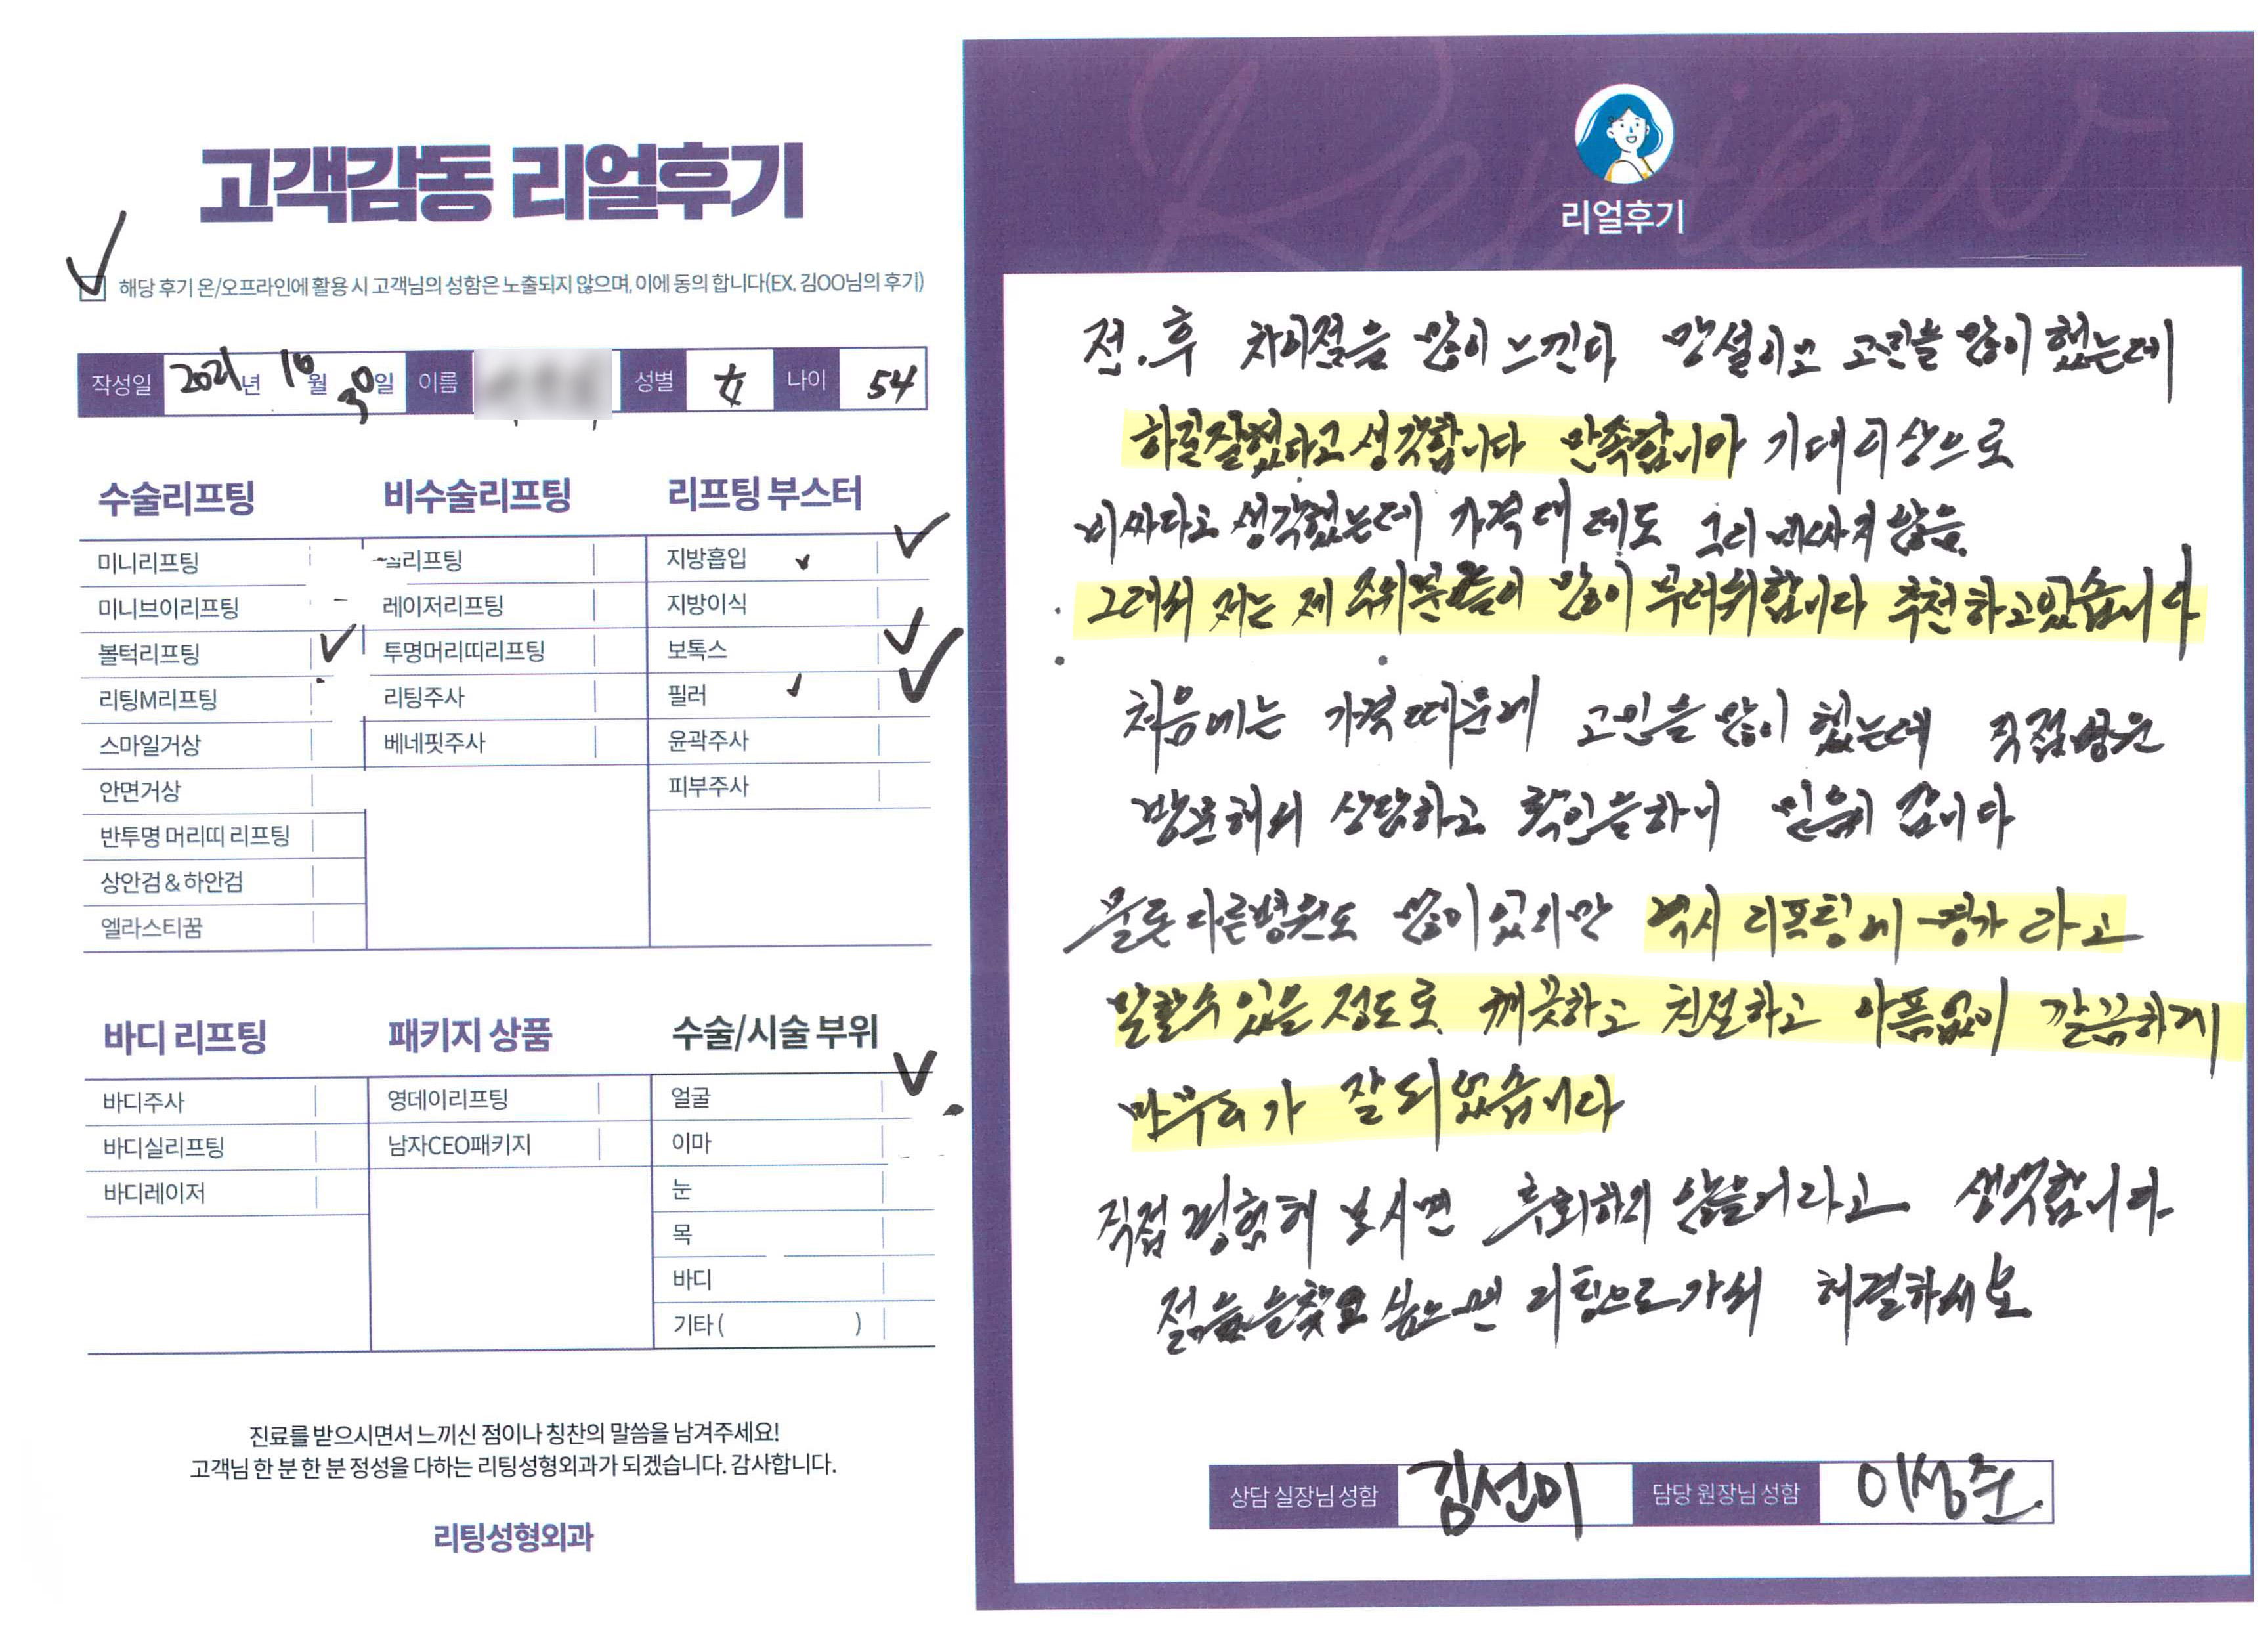 고객감동 리얼후기
해당 후기 온/오프라인에 활용 시 고객님의 성함은 노출되지 않으며, 이에 동의 합니다(EX. 김OO님의 후기)
작성일 2021년 10월 30일 이름 성별 女 나이 54
수술리프팅
미니리프팅
미니브이리프팅
볼턱리프팅
리팅M리프팅
스마일거상
안면거상
반투명 머리띠 리프팅
상안검 & 하안검
엘라스티꿈
비수술리프팅
리프팅
레이저리프팅
투명머리띠리프팅
리팅주사
베네핏주사
리프팅 부스터
지방흡입
지방이식
보톡스
필러
윤곽주사
피부주사
바디 리프팅
바디주사
바디실리프팅
바디레이저
패키지 상품
영데이리프팅
남자CEO패키지
수술/시술 부위
얼굴
이마
눈
목
바디
기타 ( )
진료를 받으시면서 느끼신 점이나 칭찬의 말씀을 남겨주세요!
고객님 한 분 한 분 정성을 다하는 리팅성형외과가 되겠습니다. 감사합니다.
리팅성형외과
Review
리얼후기
전.후 차이점을 많이 느낀다 망설이고 고민을 많이 했는데
하길잘했다고 생각합니다 만족합니다 기대이상으로
비싸다고 생각했는데 가격대 데도 그리 비싸지 않음.
그래서 저는 제 주위분들이 많이 부러워합니다 추천하고있습니다
처음에는 가격때문에 고민을 많이 했는데 직접병원
방문해서 상담하고 확인을하니 믿음이 갑니다
물론 다른병원도 많이있지만 역시 리프팅에 명가 라고
말할수 있을 정도로 깨끗하고 친절하고 아픔없이 깔끔하게
마무리가 잘 되었습니다
직접 경험해 보시면 후회하지 않을거라고 생각합니다
젊음을찾고 싶으면 리팅으로가서 해결하세요
상담 실장님 성함 김선미 담당 원장님 성함 이성준